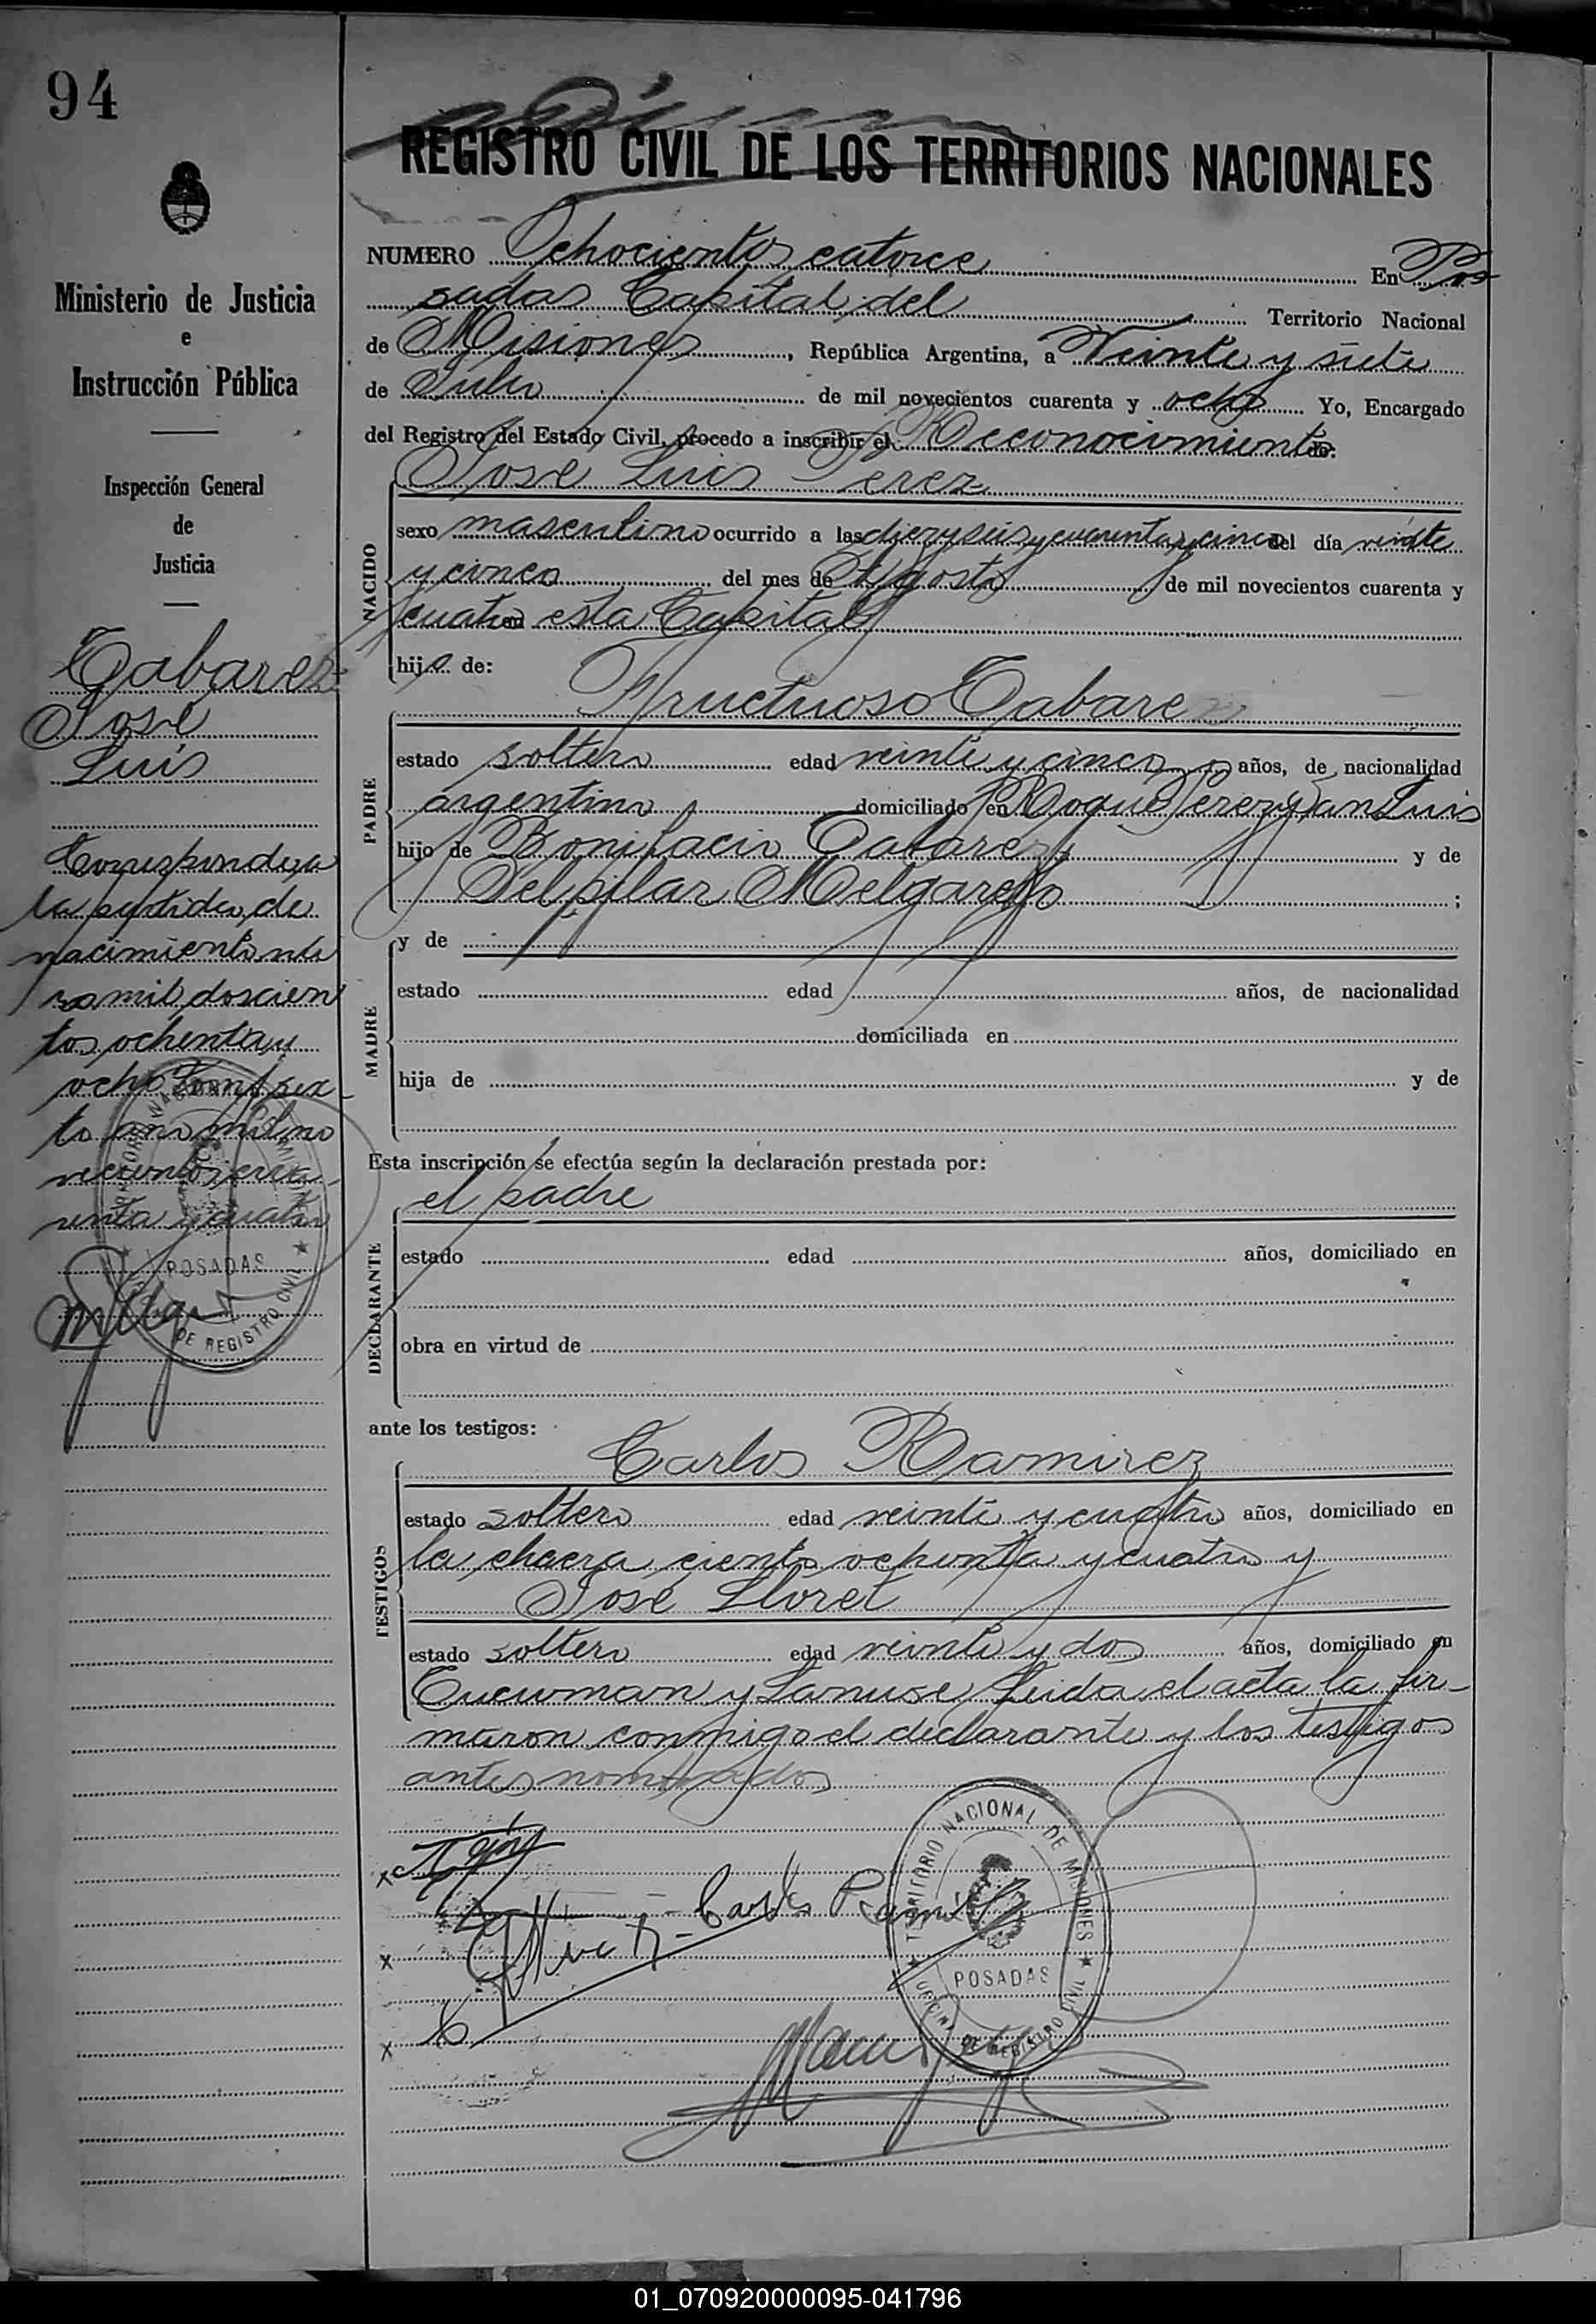 94
Ministerio de Justicia
e
Instrucción Pública
Inspección General
de
Justicia
Tabarez
José
Luis
Corresponde a
la partida de
nacimiento núme
ro mil doscien
tos ochenta y
ocho Tomo sex
to año mil no
vecientos cua
renta y cuatro
REGISTRO CIVIL DE LOS TERRITORIOS NACIONALES
NUMERO Ochocientos catorce En Po
sadas Capital del Territorio Nacional
de Misiones, República Argentina, a Veinte y siete
de Julio de mil novecientos cuarenta y ocho Yo, Encargado
del Registro del Estado Civil, procedo a inscribir el Reconocimiento de:
José Luis Perez
NACIDO
sexo masculino ocurrido a las diez y seis y cuarenta y cinco del día veinte
y cinco del mes de Agosto de mil novecientos cuarenta y
cuatro en esta Capital
hijo de:
PADRE
Fructuoso Tabarez
estado soltero edad veinte y cinco años, de nacionalidad
argentino domiciliado en Roque Perez y San Luis
hijo de Bonifacio Tabarez y de
Del pilar Melgarejo ;
MADRE
y de
estado edad años, de nacionalidad
domiciliada en
hija de y de
Esta inscripción se efectúa según la declaración prestada por:
DECLARANTE
el padre
estado edad años, domiciliado en
obra en virtud de
ante los testigos:
TESTIGOS
Carlos Ramirez
estado soltero edad veinte y cuatro años, domiciliado en
la chacra ciento ochenta y cuatro y
José Lloret
estado soltero edad veinte y dos años, domiciliado en
Tucuman y Lanuse Leida el acta la fir-
maron conmigo el declarante y los testigos
antes nombrados
Carlos Ramirez
TERRITORIO NACIONAL DE MISIONES
POSADAS
OFICINA DE REGISTRO CIVIL
01_070920000095-041796